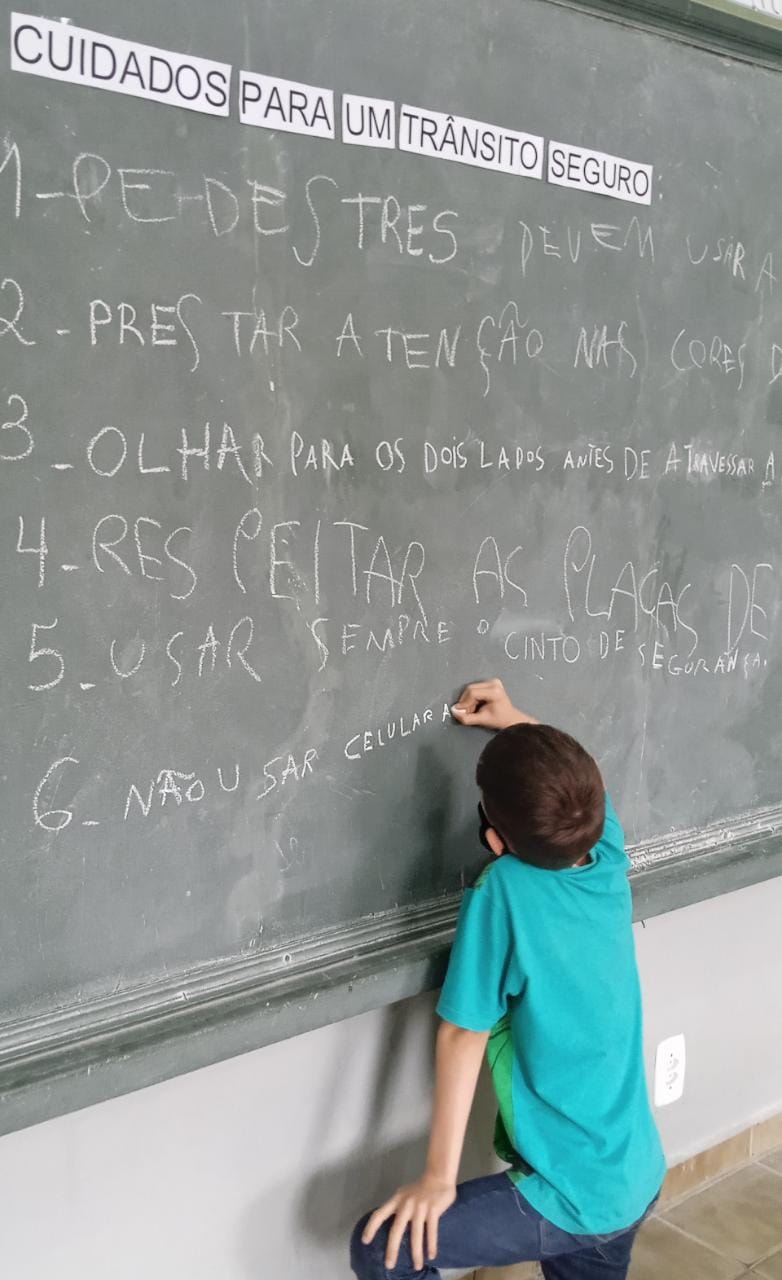 CUIDADOS PARA UM TRÂNSITO SEGURO:
1-PEDESTRES DEVEM USAR A
2-PRESTAR ATENÇÃO NAS CORES D
3-OLHAR PARA OS DOIS LADOS ANTES DE ATRAVESSAR A
4-RESPEITAR AS PLACAS DE
5-USAR SEMPRE O CINTO DE SEGURANÇA.
6-NÃO USAR CELULAR A